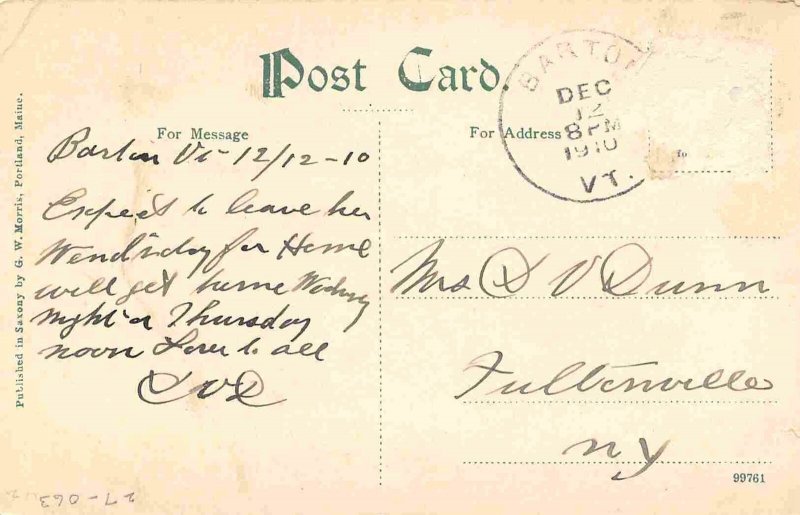 Post Card.
BARTON
DEC
12
8 PM
1910
VT.
For Message
For Address
Barton Vt - 12/12-10
Expect to leave her
Wendsday for Home
will get home
night or Thursday
noon Love to all
DVD
Mrs D V Dunn
Fultonville
NY
99761
Published in Saxony by G. W. Morris, Portland, Maine.
27-063